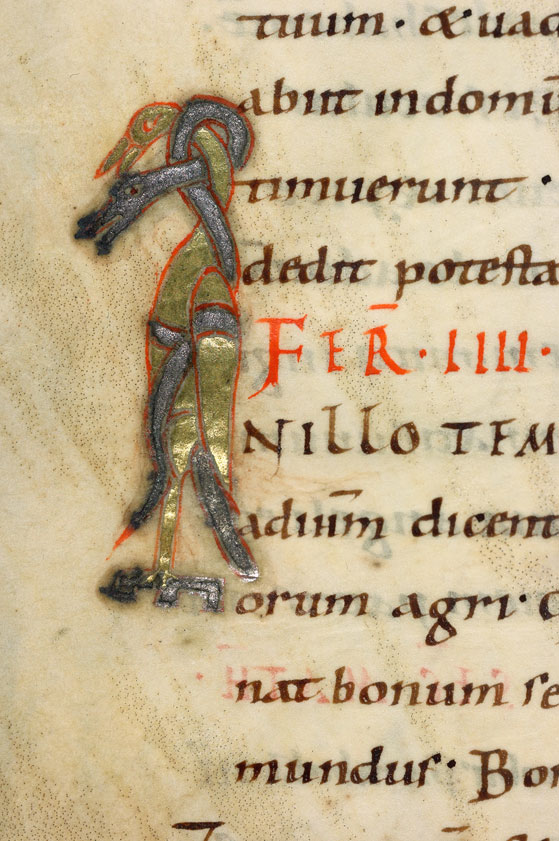 tuum · & uad
abiit in domū
timuerunt ·
dedit potesta
FER̄ · IIII ·
NILLO TEM
adiūm dicent
orum agri · 
nat bonum se
mundus · Bon